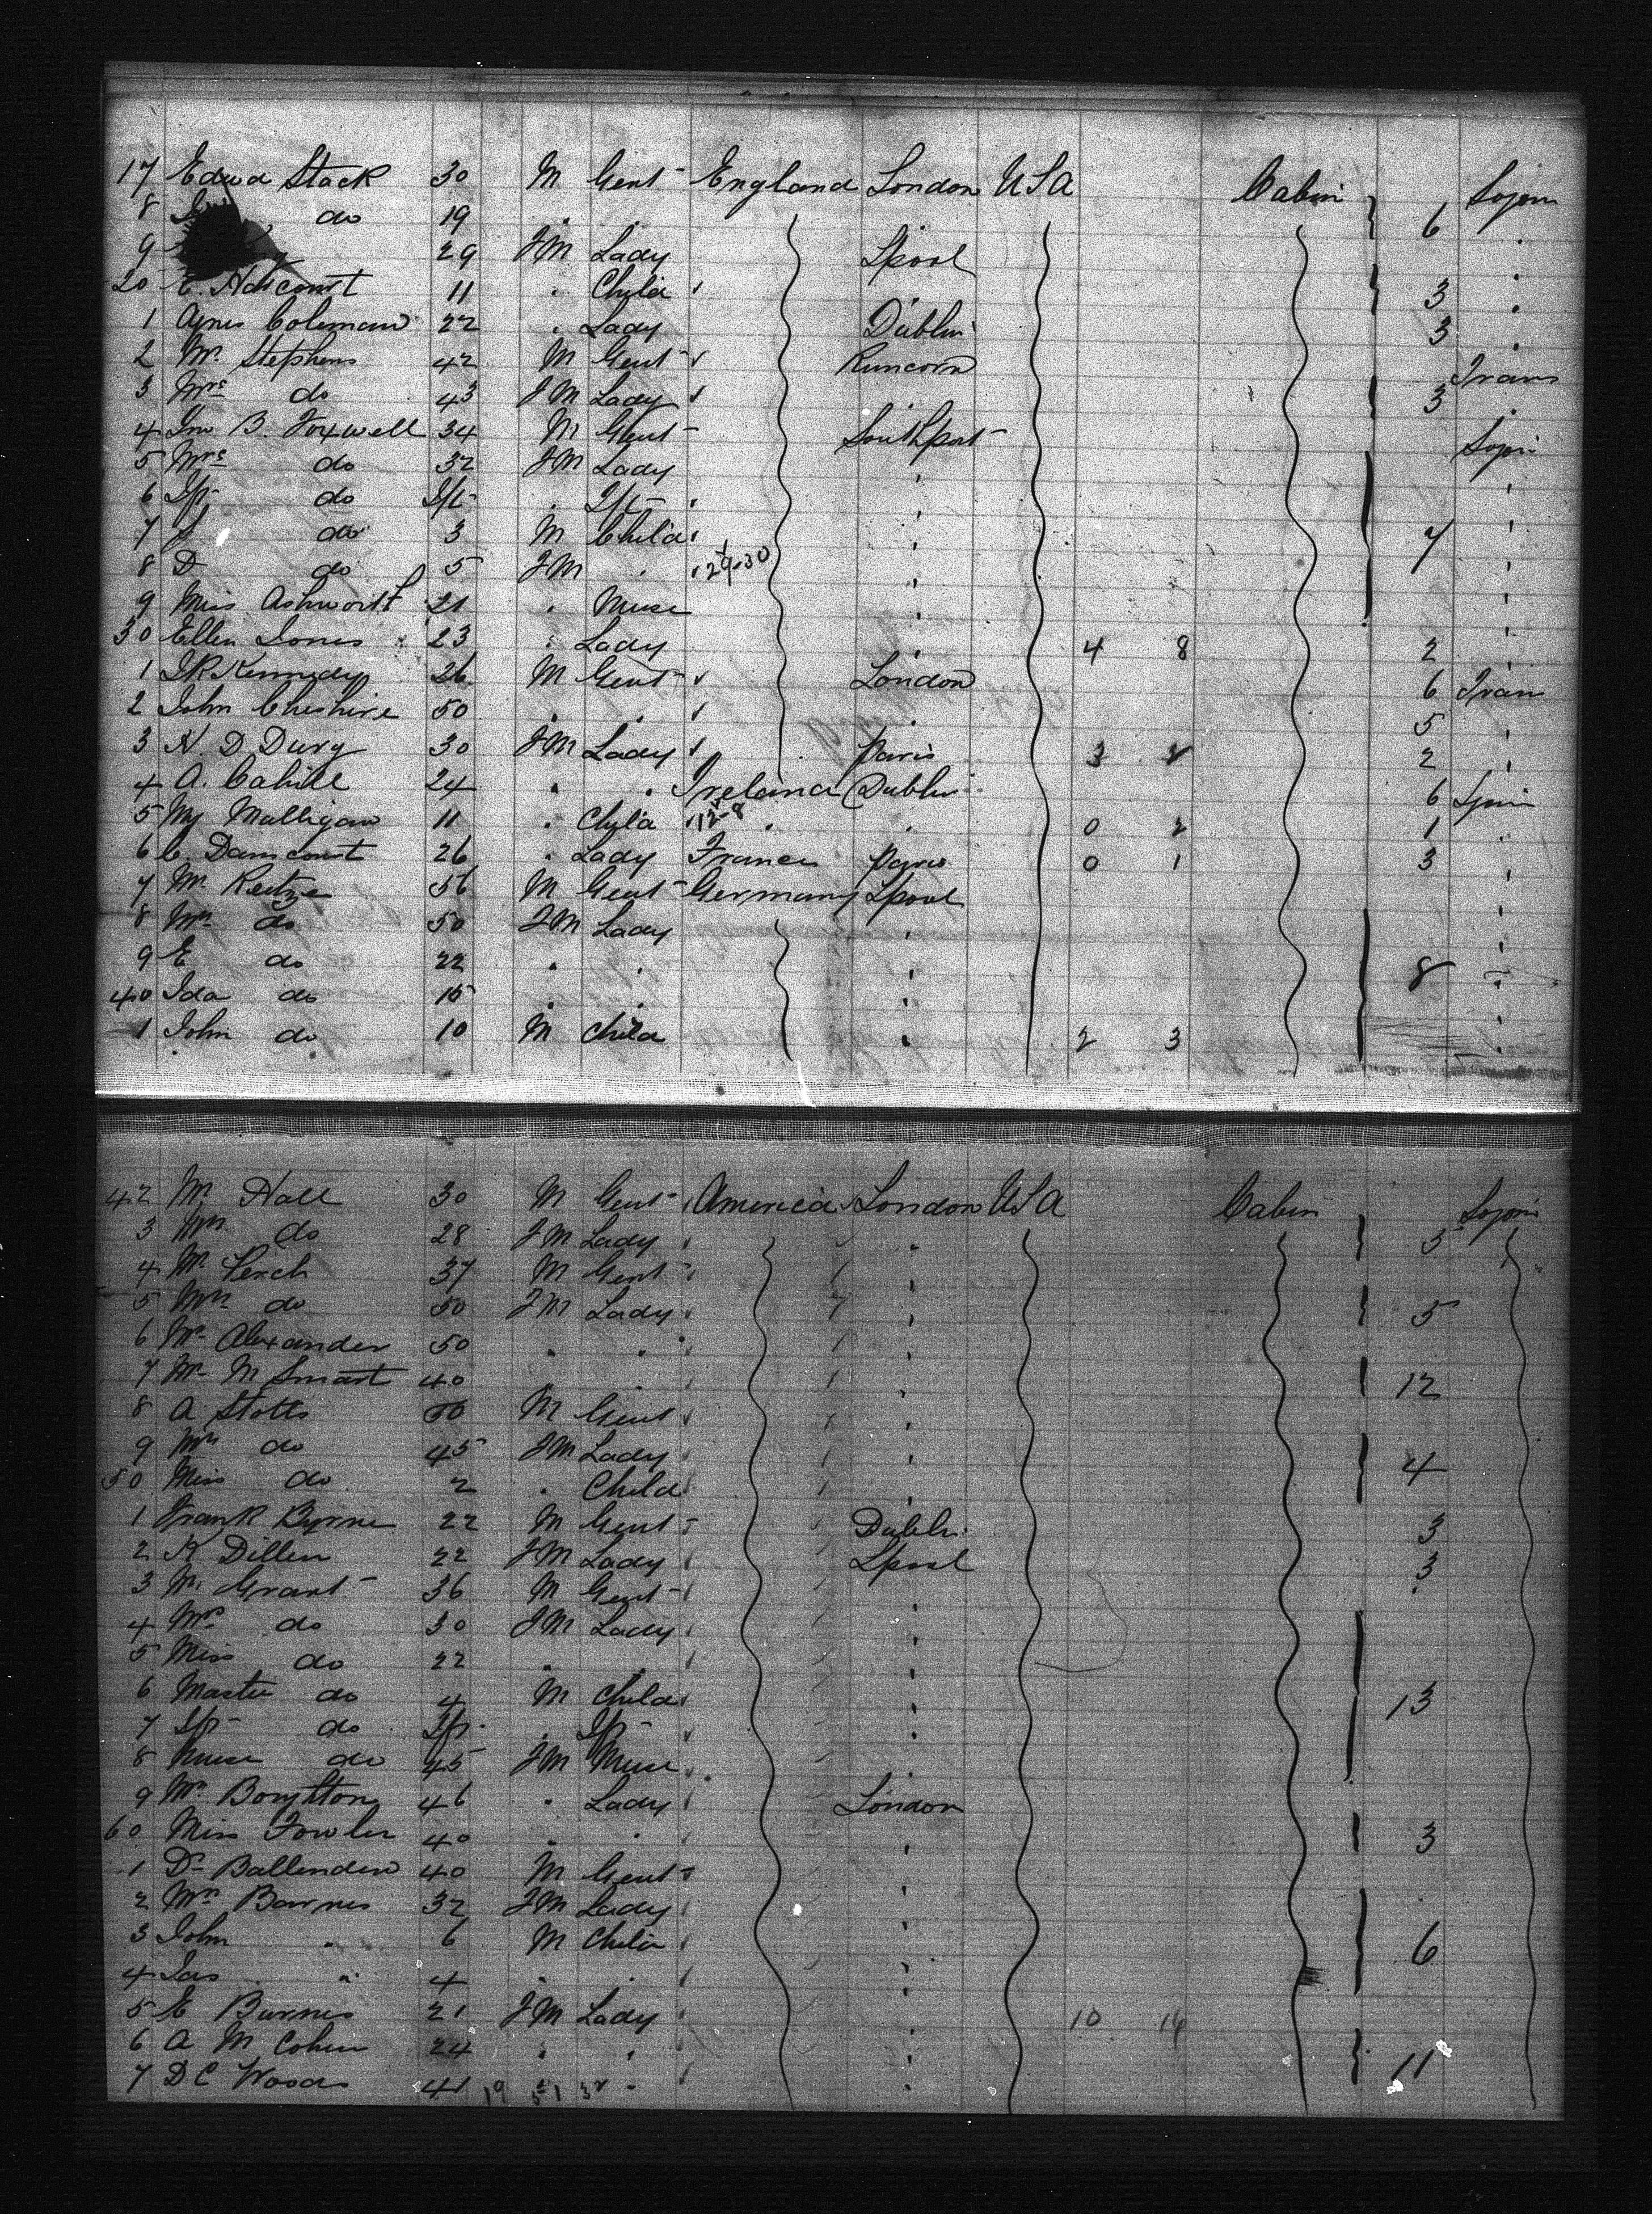 17 Edwd Stack 30 M Gent England London USA Cabin 6 Sojorn
8 do 19
9 29 FM Lady Lpool
20 E. Adicourt 11 " Child 3
1 Agnes Coleman 22 " Lady Dublin 3
2 Mr. Stephens 42 M Gent Runcorn Trans
3 Mrs do 43 FM Lady 3
4 Jno B. Foxwell 34 M Gent Southport Sojn
5 Mrs do 32 FM Lady
6 Inf do Inf " Inf
7 J do 3 M Child 7
8 D do 5 FM " 29-30
9 Miss Ashworth 21 " Nurse
30 Ellen Jones 23 " Lady 4 8 2
1 JR Kennedy 26 M Gent London 6 Trans
2 John Cheshire 50 " " 5
3 N. D Dury 30 FM Lady Paris 3 8 2
4 A. Cahill 24 " " Ireland Dublin 6 Sojn
5 My Mulligan 11 " Child 12-8 " " 0 2 1
6 C. Damcourt 26 " Lady France Paris 0 1 3
7 Mr Reitze 56 M Gent Germany Lpool
8 Mrs do 50 FM Lady
9 E do 22 " " 8
40 Ida do 15 " "
1 John do 10 M Child 2 3
42 Mr Hall 30 M Gent America London USA Cabin Sojorn
3 Mrs do 28 FM Lady 5
4 Mr Perch 37 M Gent
5 Mrs do 50 FM Lady 5
6 Mrs Alexander 50 " "
7 Mrs M Smart 40 " " 12
8 A Stotts 50 M Gent
9 Mrs do 45 FM Lady 4
50 Miss do 2 " Child
1 Frank Byrne 22 M Gent Dublin 3
2 K Dillen 22 FM Lady Lpool 3
3 Mr Grant 36 M Gent
4 Mrs do 30 FM Lady
5 Miss do 22 " "
6 Master do 4 M Child 13
7 Inf do Inf " Inf
8 Nurse do 45 FM Nurse
9 Mrs Boughton 46 " Lady London
60 Miss Fowler 40 " " 3
1 Dr Ballenden 40 M Gent
2 Mrs Barnes 32 FM Lady
3 John " 6 M Child 6
4 Jas " 4 " "
5 E Burnes 21 FM Lady 10 14
6 A M Cohen 24 " "
7 D C Woods 41 19 " 11